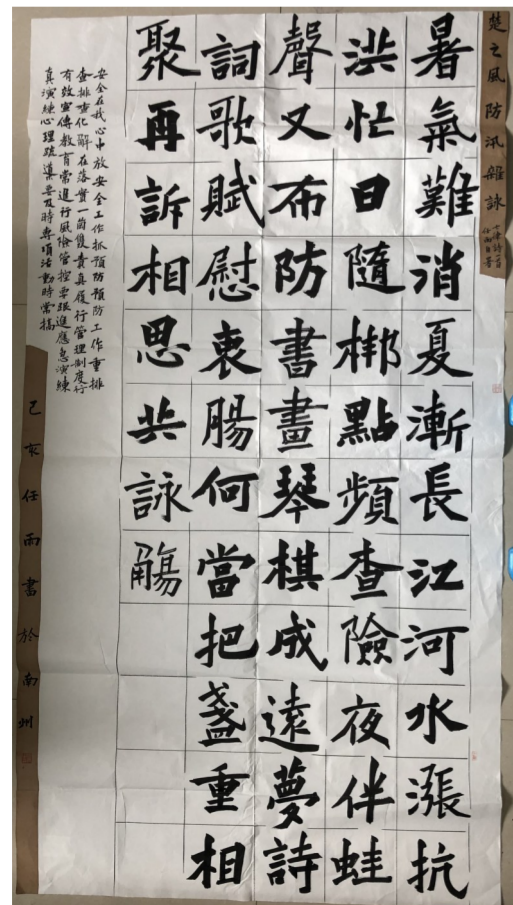 楚之風防汛組詠
暑氣難消夏漸長江河水漲抗
洪忙日隨梆點頻查險夜伴蛙
聲又布防書畫琴棋成遠夢詩
詞歌賦慰衷腸何當把盞重相
聚再訴相思共詠觴
安全在我心中放安全工作抓預防預防工作重排
查排查化解在落實一崗雙責真履行管理制度行
有效宣傳教育常進行風險管控要跟進應急演練
真演練心理疏導要及時專項活動時常搞
己亥任雨書於南州